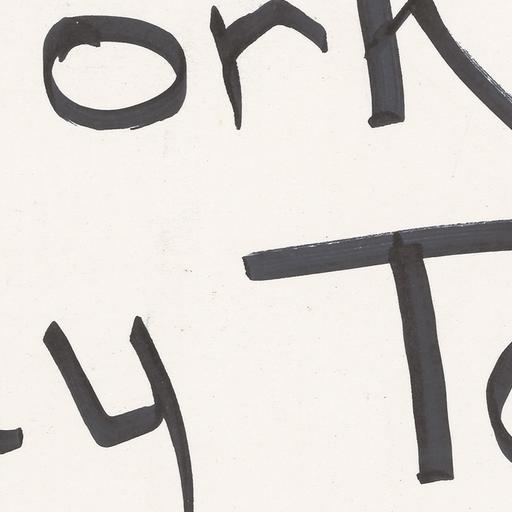 ork
y To